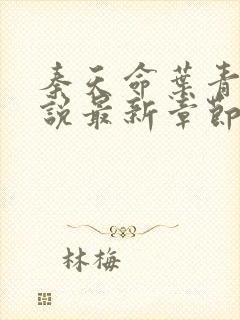 秦天命葉青
說最新章節
林梅